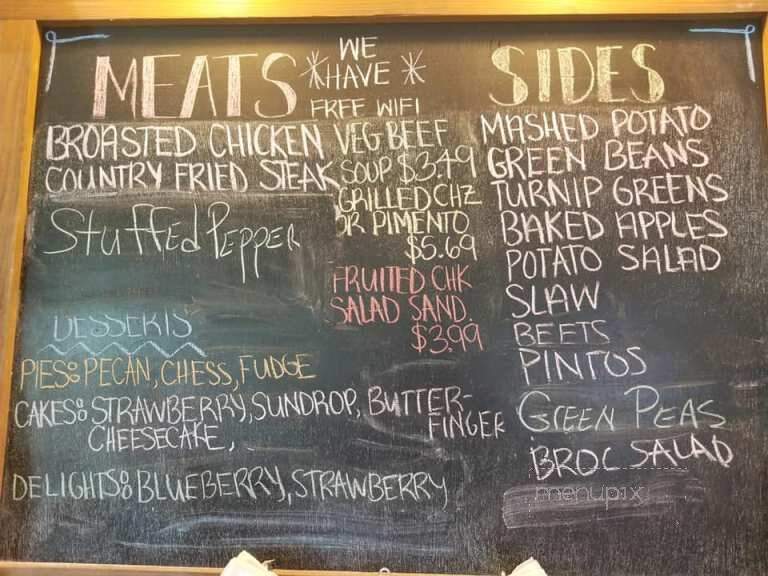 MEATS
BROASTED CHICKEN
COUNTRY FRIED STEAK
Stuffed PEPPER
DESSERTS
PIES: PECAN, CHESS, FUDGE
CAKES: STRAWBERRY, SUNDROP, BUTTER-
FINGER
CHEESECAKE,
DELIGHTS: BLUEBERRY, STRAWBERRY
WE
HAVE
FREE WIFI
VEG BEEF
SOUP $3.49
GRILLED CHZ
OR PIMENTO
$5.69
FRUITED CHK
SALAD SAND.
$3.99
SIDES
MASHED POTATO
GREEN BEANS
TURNIP GREENS
BAKED APPLES
POTATO SALAD
SLAW
BEETS
PINTOS
GREEN PEAS
BROC SALAD
menupix